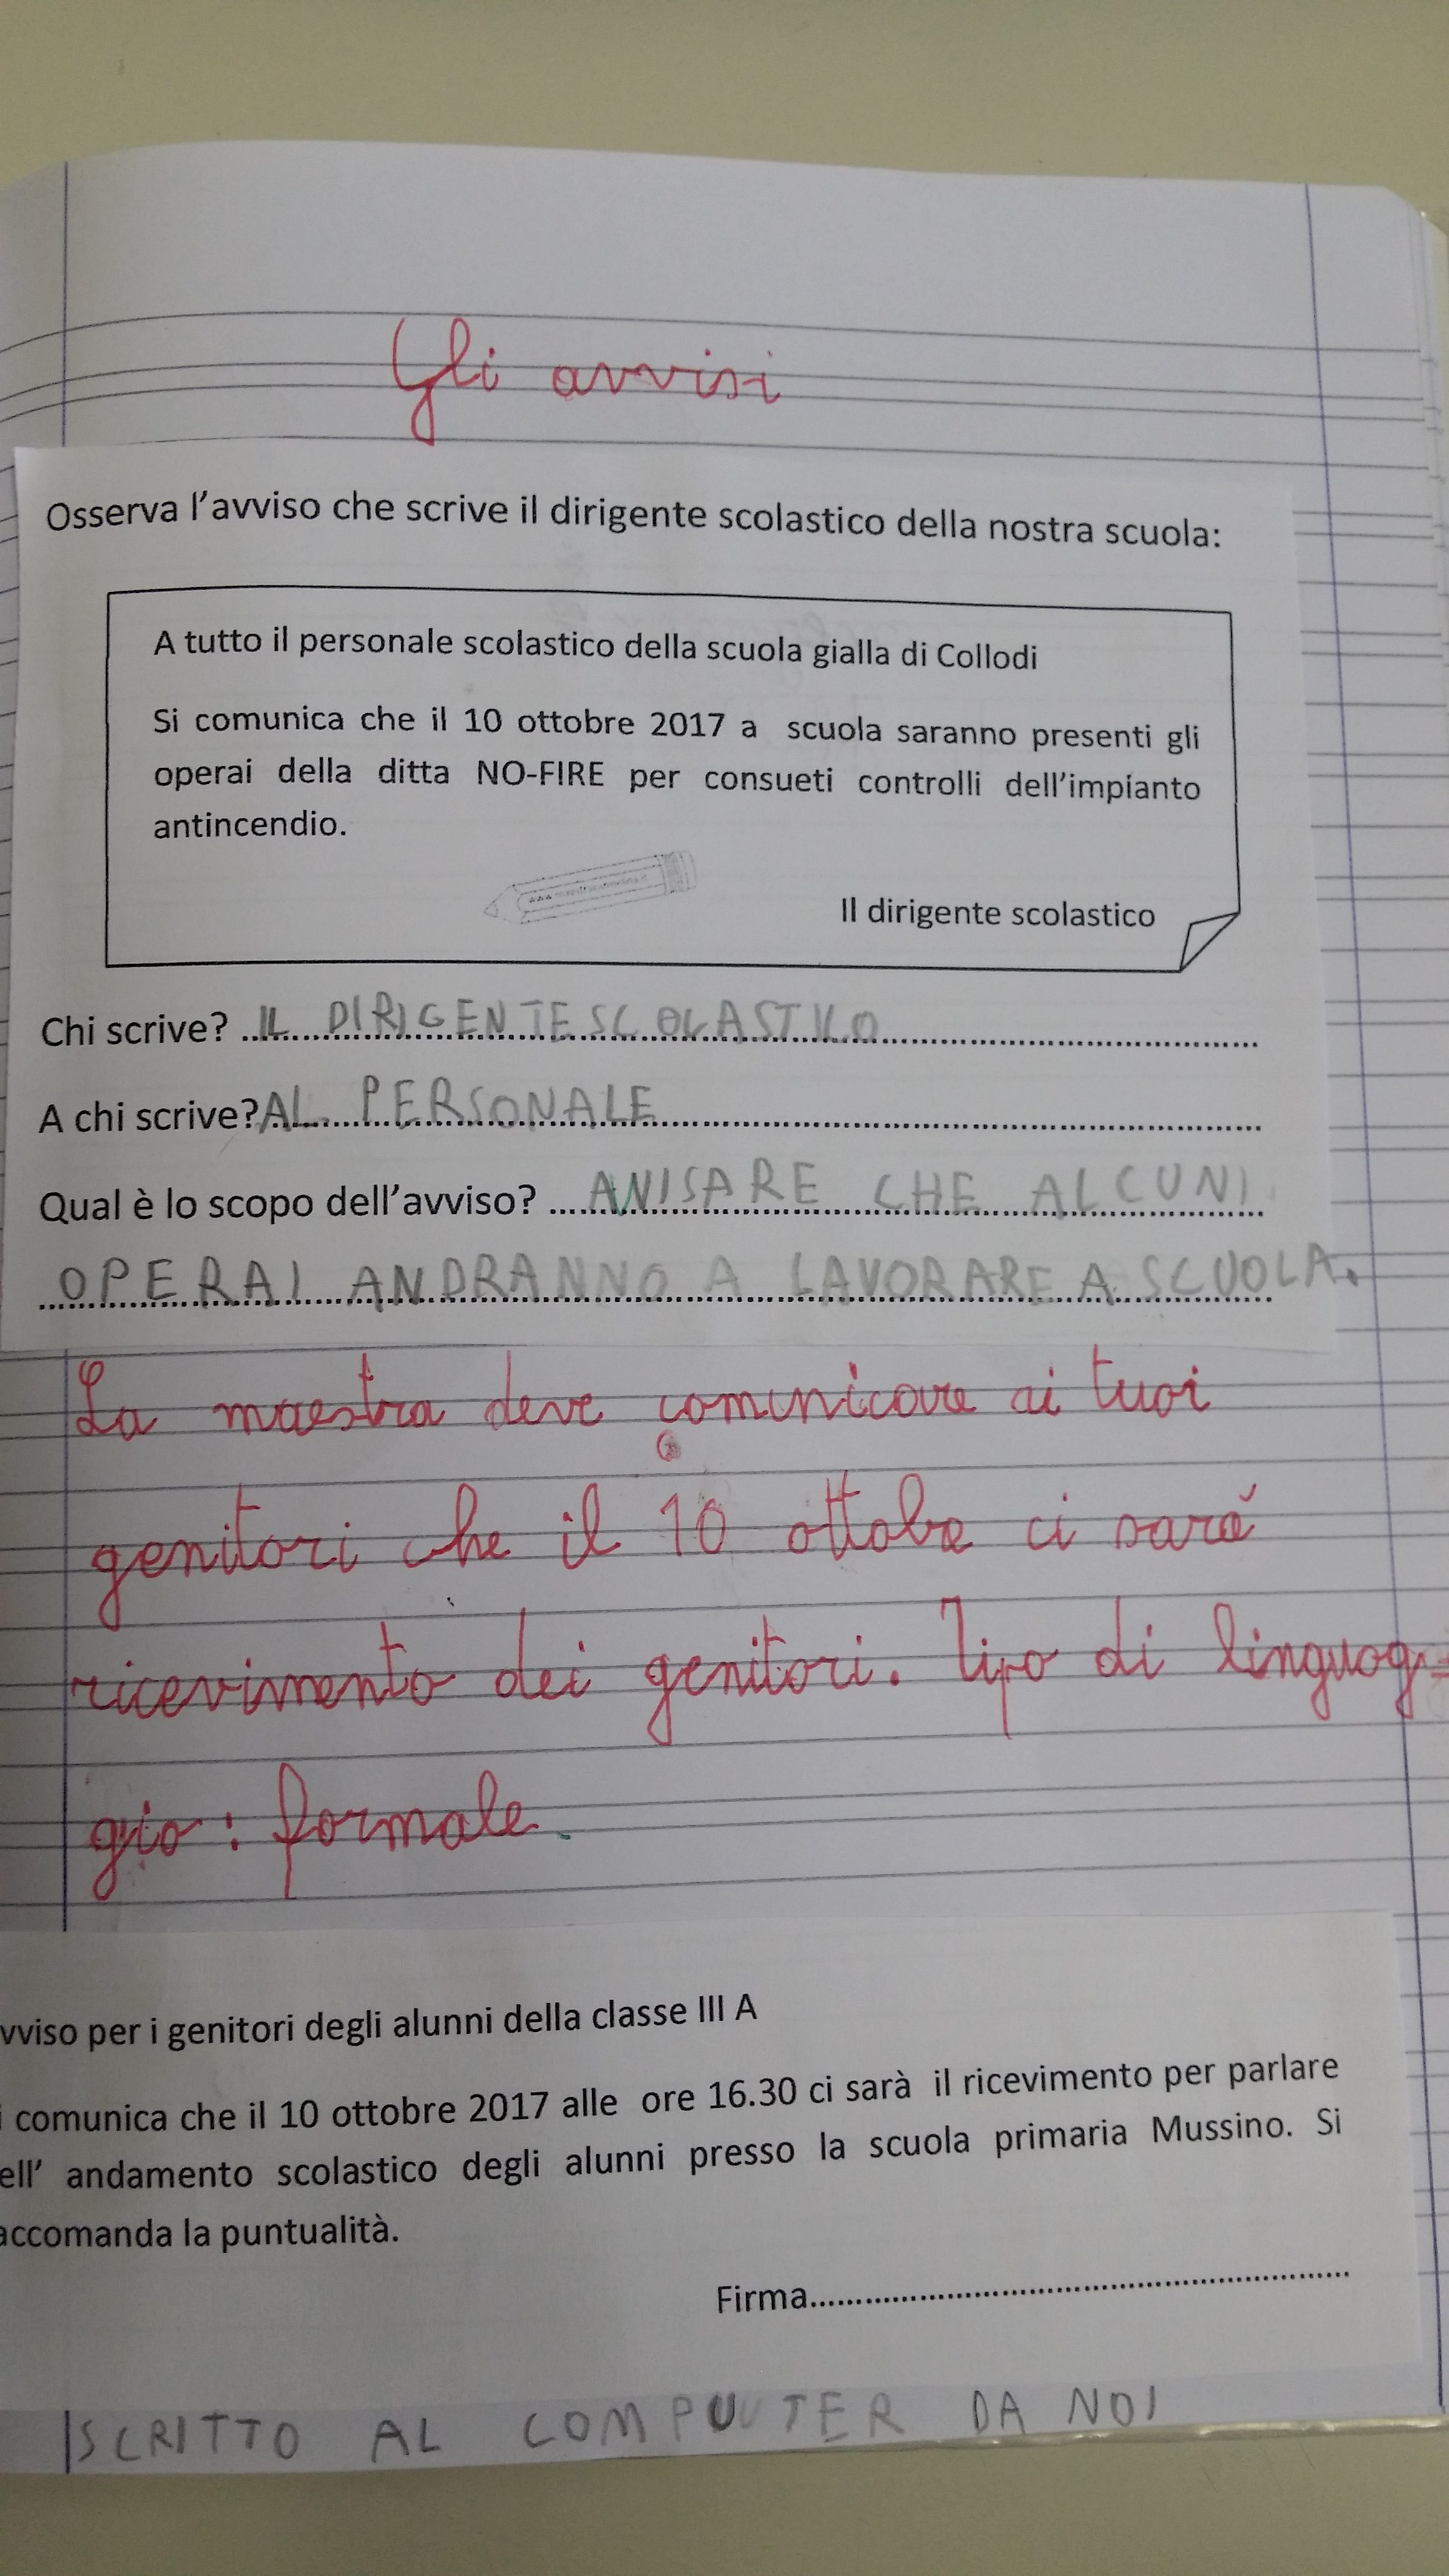 Gli avvisi
Osserva l'avviso che scrive il dirigente scolastico della nostra scuola:
A tutto il personale scolastico della scuola gialla di Collodi
Si comunica che il 10 ottobre 2017 a scuola saranno presenti gli
operai della ditta NO-FIRE per consueti controlli dell'impianto
antincendio.
Il dirigente scolastico
Chi scrive? IL DIRIGENTE SCOLASTICO
A chi scrive? AL PERSONALE
Qual è lo scopo dell'avviso? AVVISARE CHE ALCUNI
OPERAI ANDRANNO A LAVORARE A SCUOLA.
La maestra deve comunicare ai tuoi
genitori che il 10 ottobre ci sarà
ricevimento dei genitori. Tipo di linguag=
gio: formale.
vviso per i genitori degli alunni della classe III A
i comunica che il 10 ottobre 2017 alle ore 16.30 ci sarà il ricevimento per parlare
ell' andamento scolastico degli alunni presso la scuola primaria Mussino. Si
accomanda la puntualità.
Firma
SCRITTO AL COMPUTER DA NOI